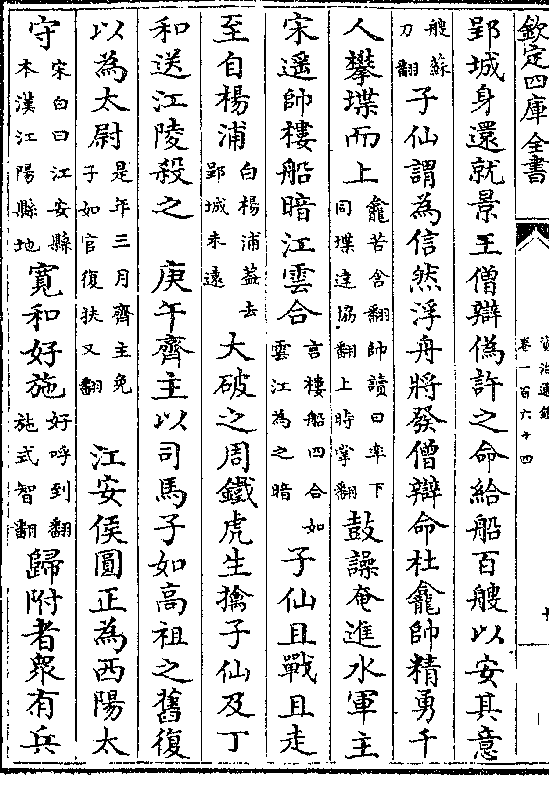 欽定四庫全書
資治通鑑
卷一百六十四
郢城身還就景王僧辯偽許之命給船百艘以安其意
艘蘇刀翻子仙謂為信然浮舟將發僧辯命杜龕帥精勇千
人攀堞而上龕苦含翻帥讀曰率下同堞達協翻上時掌翻鼓譟奄進水軍主
宋遥帥樓船暗江雲合言樓船四合如雲江為之暗子仙且戰且走
至自楊浦白楊浦蓋去郢城未遠大破之周鐵虎生擒子仙及丁
和送江陵殺之　庚午齊主以司馬子如高祖之舊復
以為太尉是年三月齊主免子如官復扶又翻　江安侯圓正為西陽太
守宋白曰江安縣本漢江陽縣地寛和好施好呼到翻施式智翻歸附者衆有兵